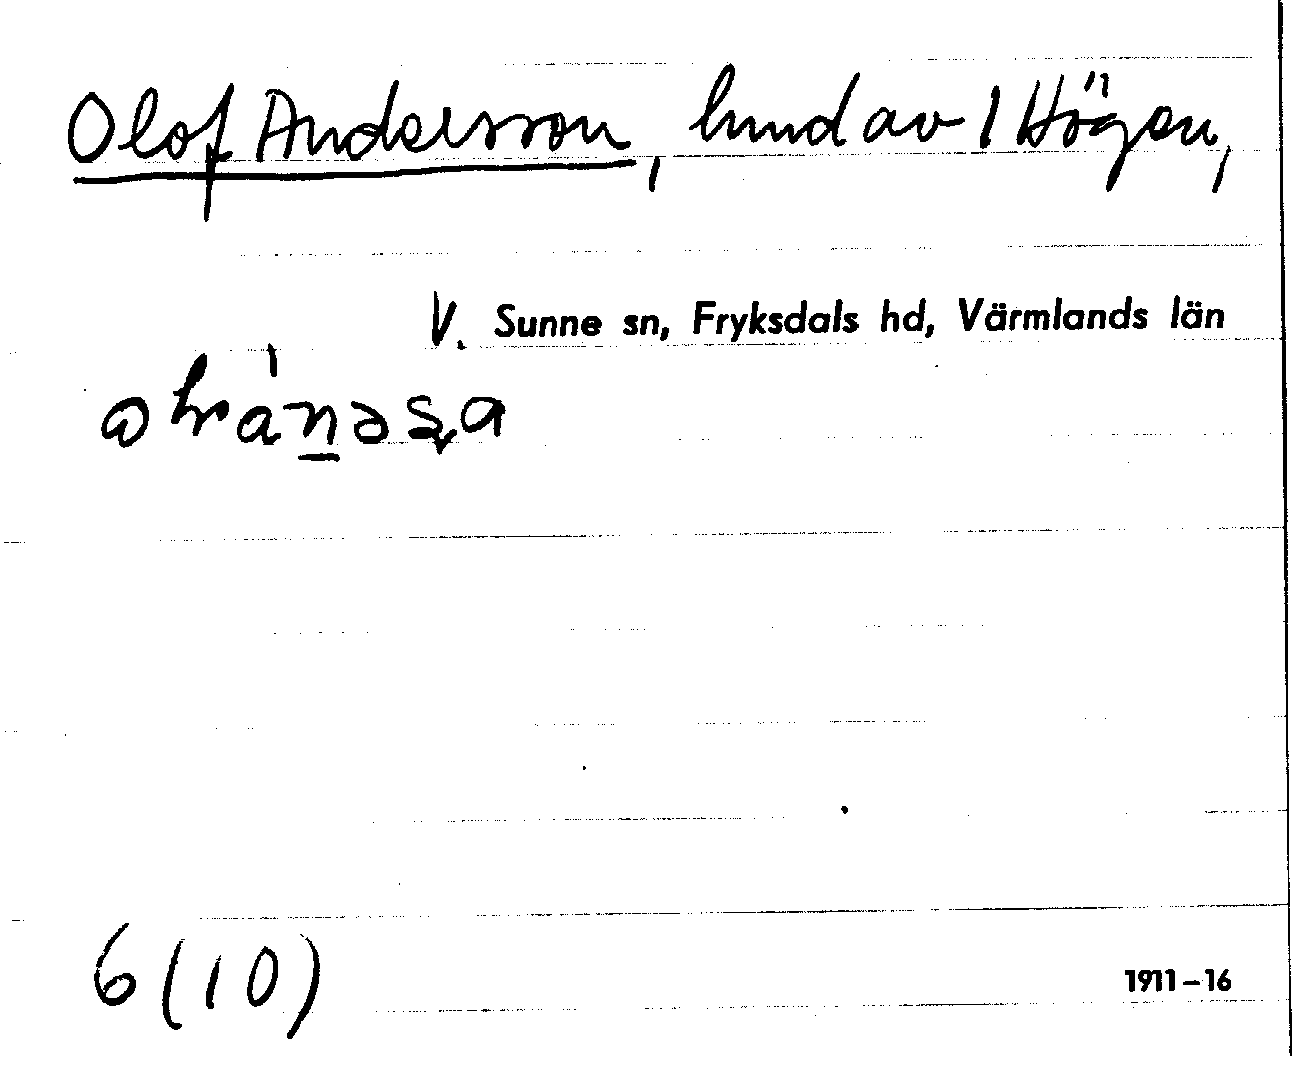 Olof Andersson, hmd av 1 Högen,
V. Sunne sn, Fryksdals hd, Värmlands län
6 (10)
1911–16